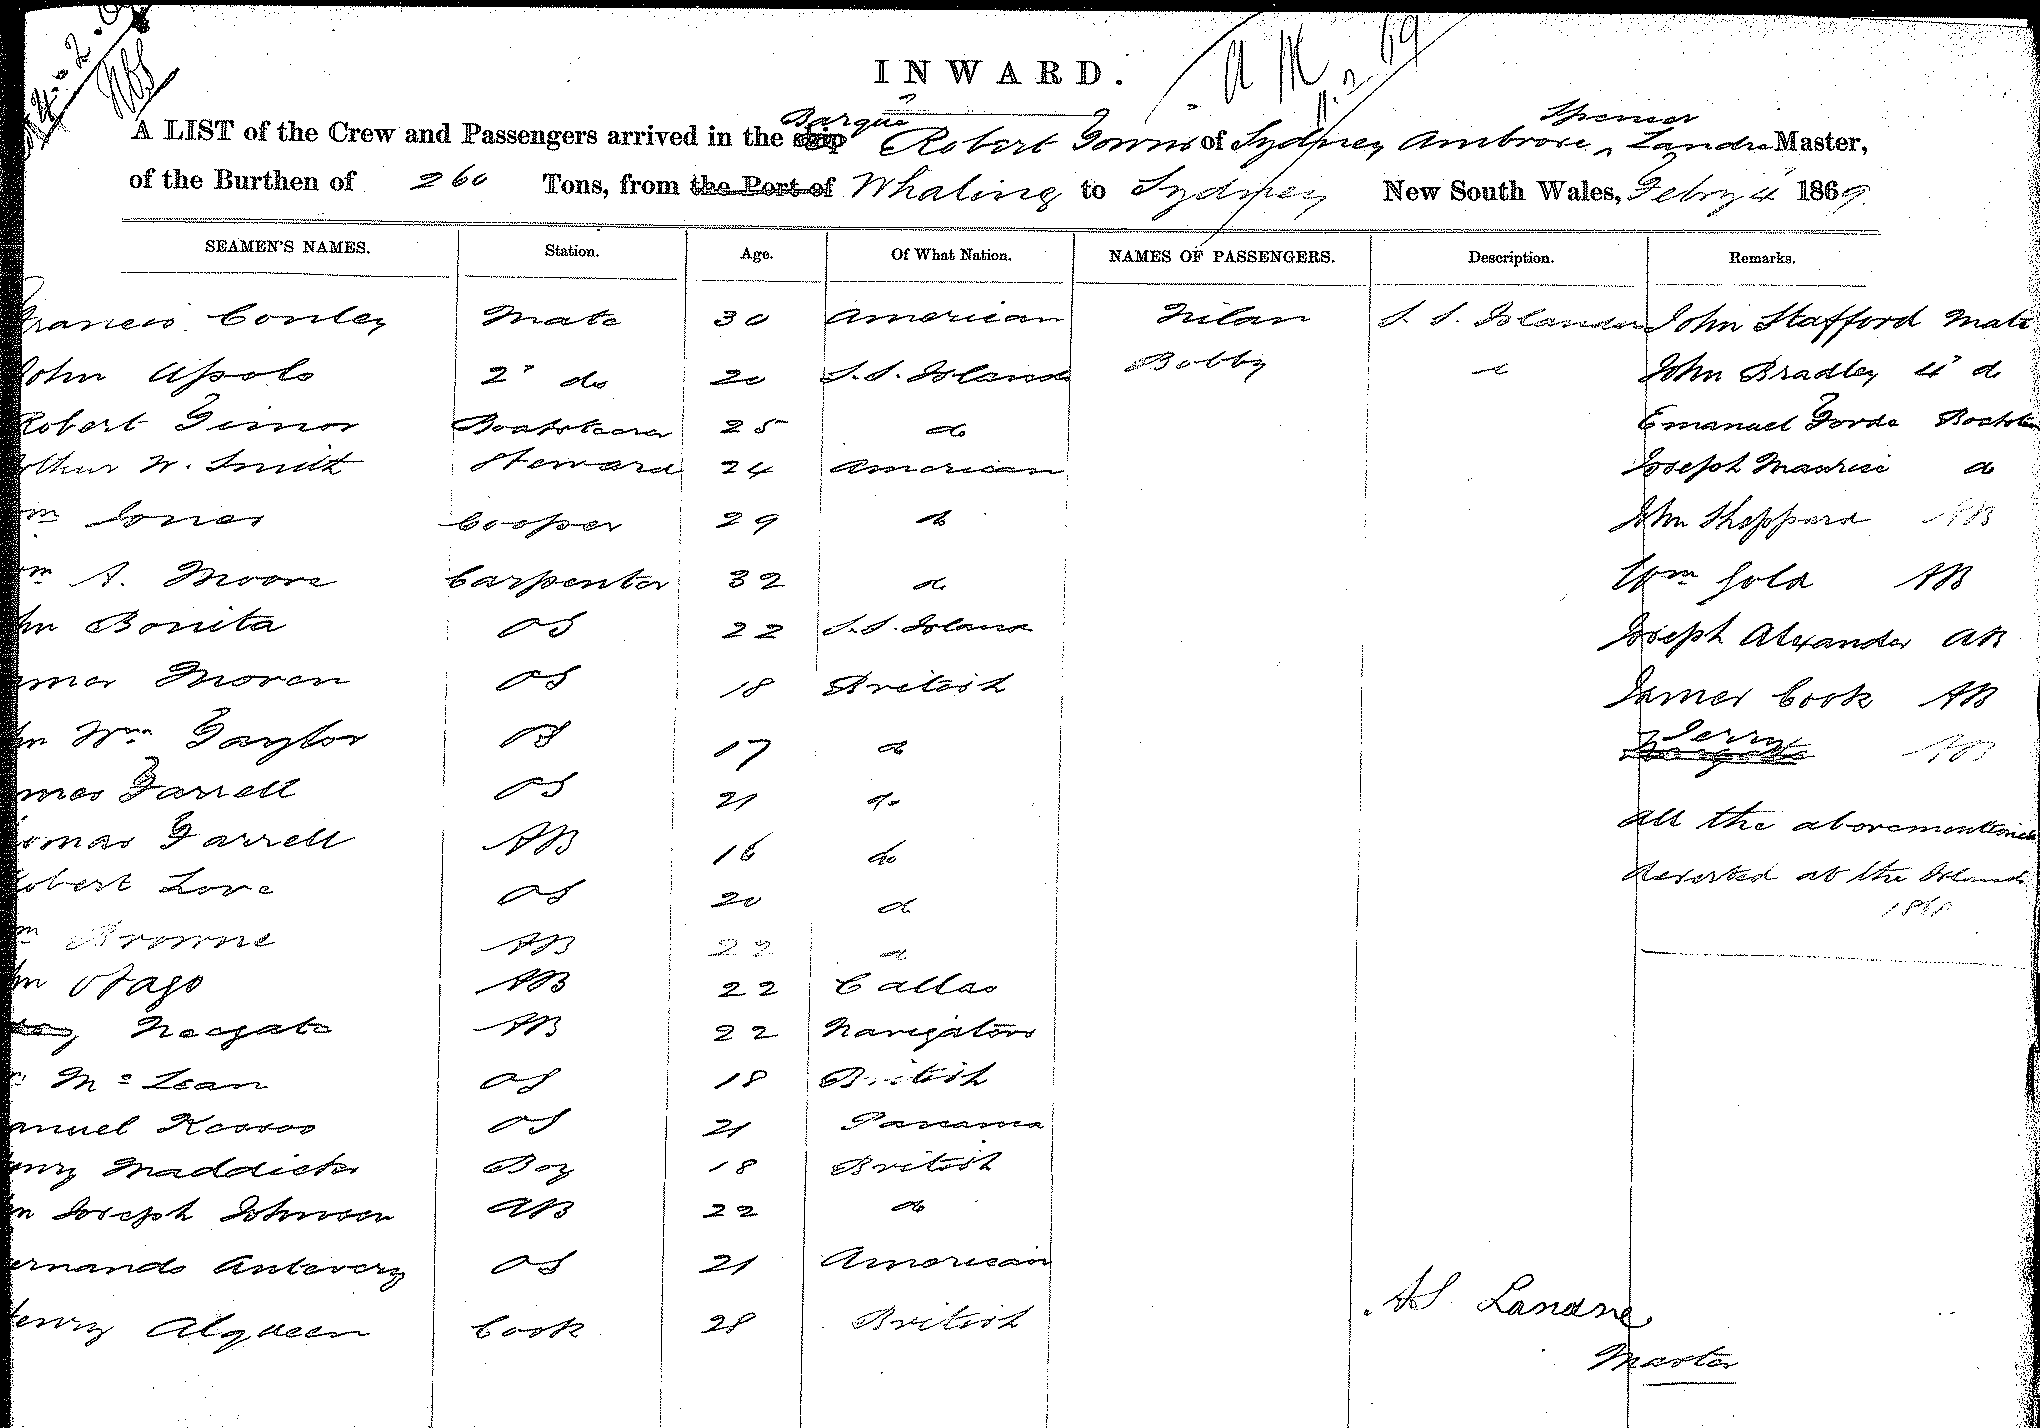 INWARD.
Barque
Spencer
A LIST of the Crew and Passengers arrived in the ship Robert Towns of Sydney Ambrose Landre Master,
of the Burthen of 260 Tons, from the Port of Whaling to Sydney New South Wales, Febry 4 1869
SEAMEN'S NAMES. Station. Age. Of What Nation. NAMES OF PASSENGERS. Description. Remarks.
Francis Conley Mate 30 American Tilan S. S. Islander John Stafford Mate
John Apolo 2d do 20 S. S. Islands Bobby do John Bradley 4 do
Robert Timor Boatsteerer 25 do Emanuel Forde Boatste
Arthur W. Smith Steward 24 American Joseph Maurice do
Wm Jones Cooper 29 do John Sheppard AB
Wm A. Moore Carpenter 32 do Wm Gold AB
hn Bonita OS 22 S. S. Island Joseph Alexander AB
ames Moren OS 18 British James Cook AB
hn Wm Taylor OS 17 do Jerry AB
ames Farrell OS 21 do
all the abovementioned
homas Farrell AB 16 do
deserted at the Islands
Robert Love OS 20 do
1868
m Browne AB 22 do
hn Otago AB 22 Callao
Neegate AB 22 Navigators
Mc Lean OS 18 British
anuel OS 21 Panama
enry Maddicks Boy 18 British
hn Joseph Johnson AB 22 do
ernando Antevery OS 21 American
Henry Alqueen Cook 28 British
AS Landre
Master